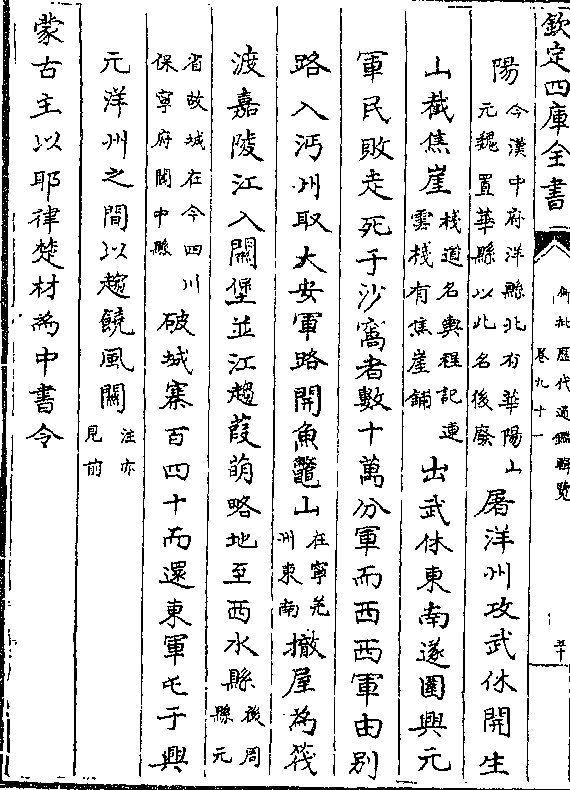 欽定四庫全書
御批歷代通鑑輯覽
卷九十一
陽今漢中府洋縣北有華陽山元魏置華縣以此名後廢屠洋州攻武休開生
山截焦崖棧道名輿程記連雲棧有焦崖鋪出武休東南遂圍興元
軍民敗走死于沙窩者數十萬分軍而西西軍由别
路入沔州取大安軍路開魚鼈山在寧羌州東南撤屋為筏
渡嘉陵江入關堡並江趨葭萌略地至西水縣後周縣元
省故城在今四川保寧府閬中縣破城寨百四十而還東軍屯于興
元洋州之間以趨饒風關注亦見前
蒙古主以耶律楚材為中書令